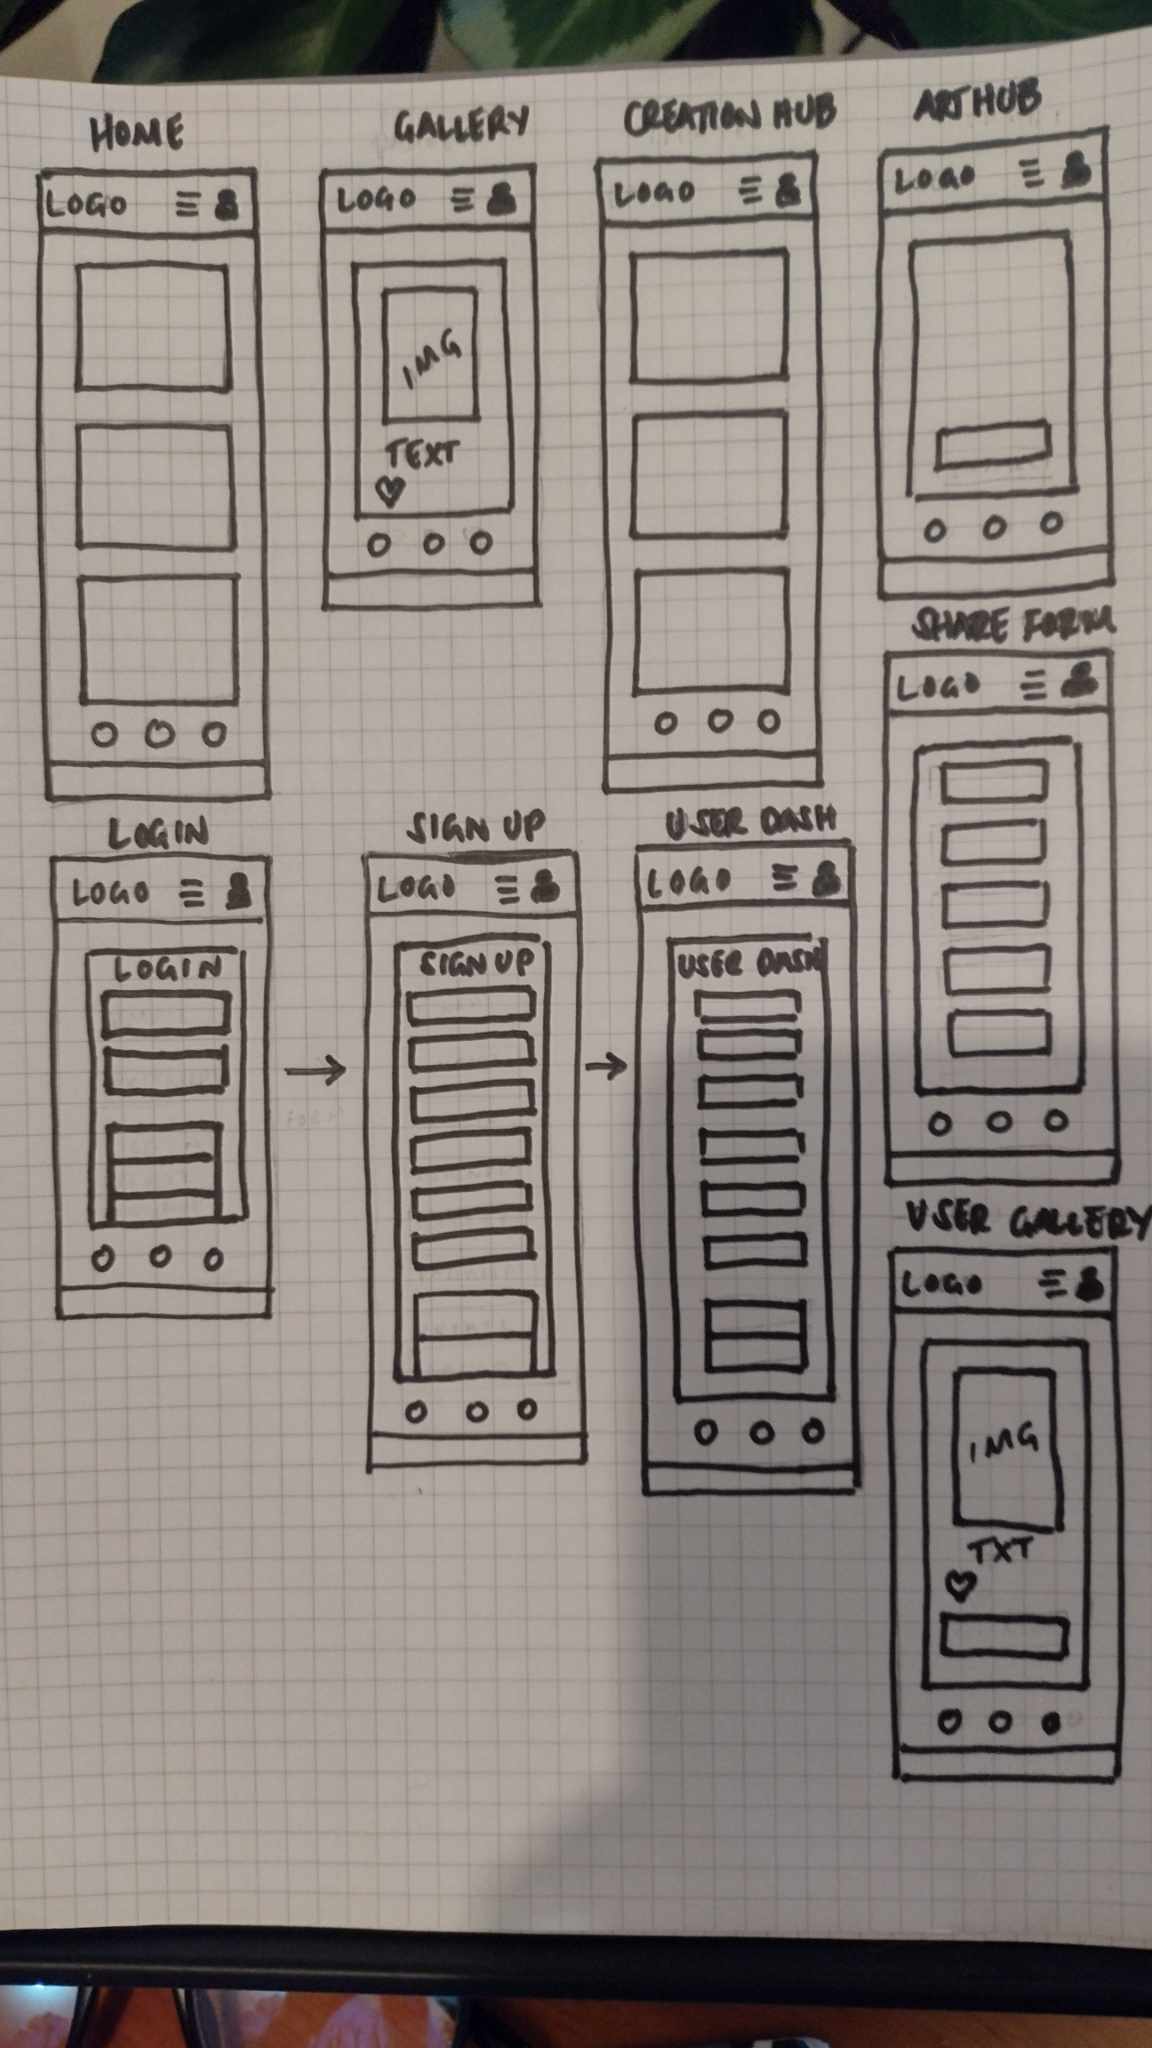 HOME
LOGO
GALLERY
LOGO
IMG
TEXT
CREATION HUB
LOGO
ART HUB
LOGO
SHARE FORM
LOGO
LOGIN
LOGO
LOGIN
SIGN UP
LOGO
SIGN UP
USER DASH
LOGO
USER DASH
USER GALLERY
LOGO
IMG
TXT